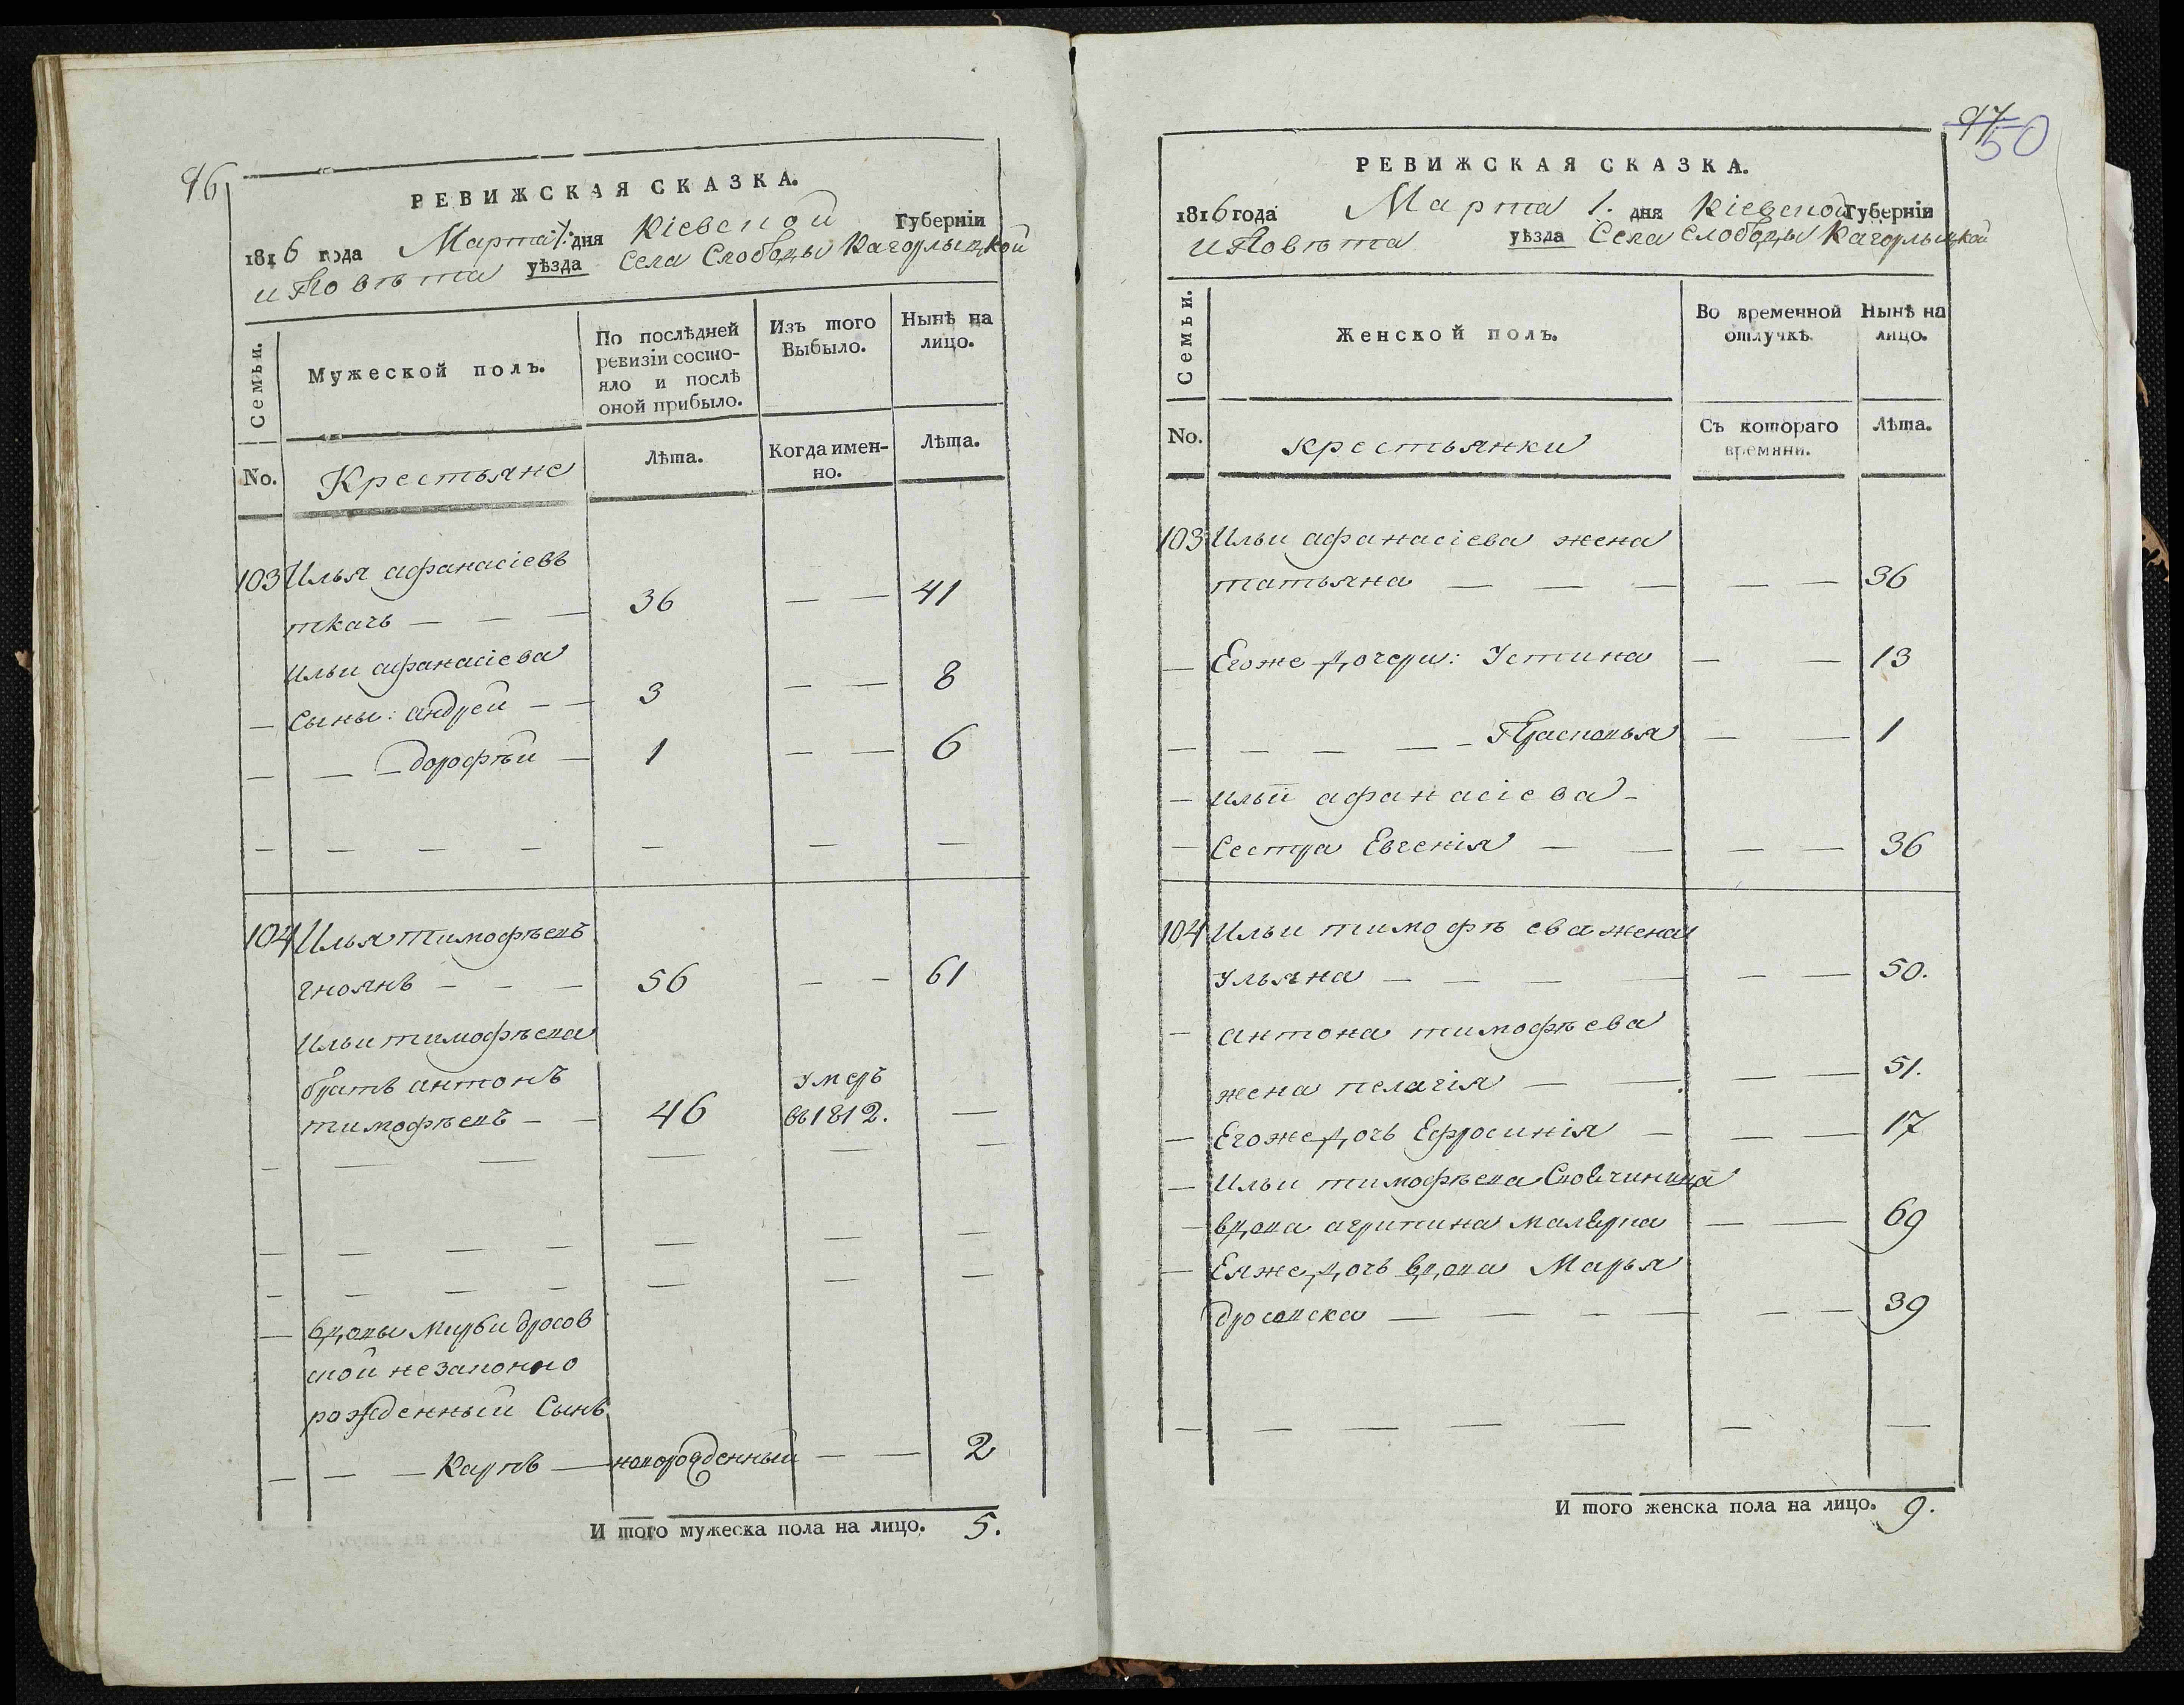 96
РЕВИЖСКАЯ СКАЗКА.
1816 года Марта 1. дня Кіевской Губерніи
и Повѣта уѣзда Села Слободы Кагорлыцкой
Семьи.
Мужеской полъ.
По послѣдней ревизіи состояло и послѣ оной прибыло.
Изъ того Выбыло.
Нынѣ на лицо.
No.
Крестьяне
Лѣта.
Когда именно.
Лѣта.
103 Илья афанасіевъ
ткачь — — — 36 — — 41
Ильи афанасіева
— Сыны: андрей — — 3 — — 8
— — — дорофѣй — 1 — — 6
— — — — — — —
104 Илья тимофѣевъ
гноянъ — — — 56 — — 61
Ильи тимофѣева
братъ антонъ умеръ
тимофѣевъ — — 46 въ 1812. —
— — — — — —
— — — — — — —
— — — — — — —
— вдовы Марьи дросов
ской незаконно
рожденный Сынъ
— — — Карпъ — новорожденный — — 2
И того мужеска пола на лицо. 5.
97
50
РЕВИЖСКАЯ СКАЗКА.
1816 года Марта 1. дня Кіевской Губерніи
и Повѣта уѣзда Села Слободы Кагорлыцкой
Семьи.
Женской полъ.
Во временной отлучкѣ.
Нынѣ на лицо.
No.
крестьянки
Съ котораго времяни.
Лѣта.
103 Ильи афанасіева жена
татьяна — — — — — 36
— Егоже дочери: Устина — — 13
— — — — — Прасковья — — 1
— Ильи афанасіева —
— Сестра Евгенія — — — — 36
104 Ильи тимофѣева жена
Ульяна — — — — — — 50.
— антона тимофѣева
жена пелагія — — — — 51.
— Егоже дочь Ефросинія — — — 17
— Ильи тимофѣева
— вдова агрипина — — 69
— Еяже дочь вдова Марья
дросовска — — — — — — 39
— — — — — — —
И того женска пола на лицо. 9.